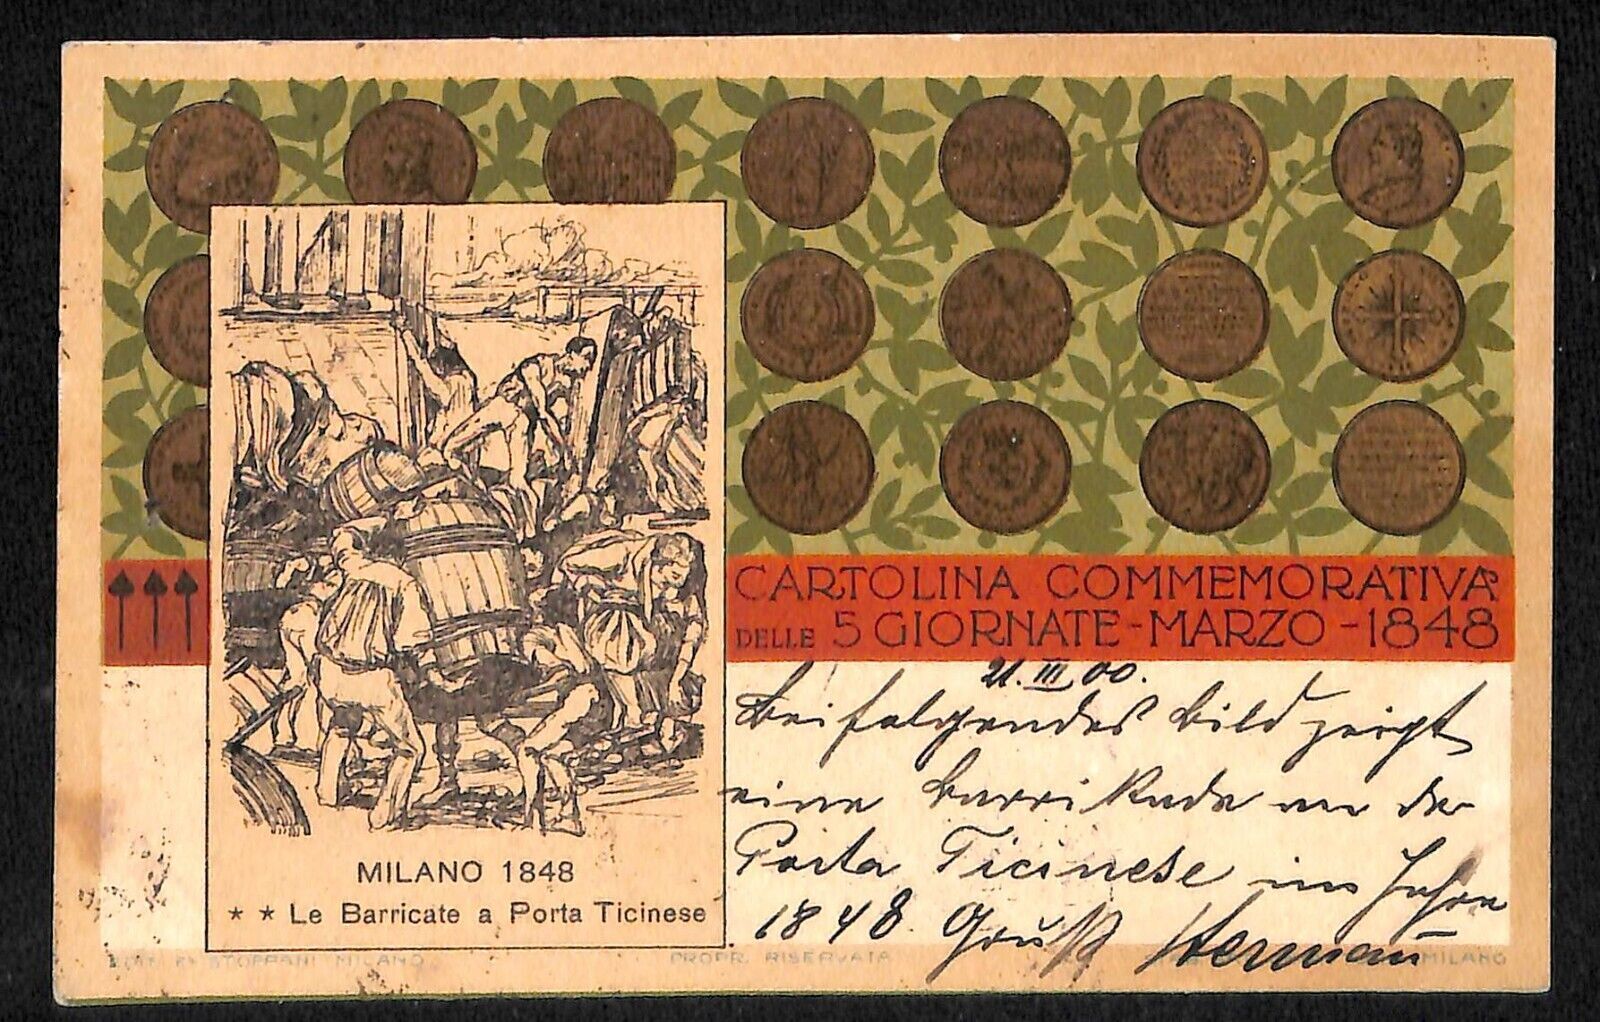 CARTOLINA COMMEMORATIVA
DELLE 5 GIORNATE - MARZO - 1848
21. III 00.
Beifolgendes Bild zeigt
eine Barrikade an der
Porta Ticinese im Jahre
1848. Gruß Hermann
MILANO 1848
★ ★ Le Barricate a Porta Ticinese
STOPPANI MILANO
PROPR. RISERVATA
MILANO